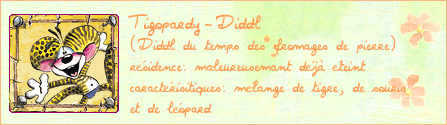 Tigopardy - Diddl
(Diddl du temps des fromages de pierre)
résidence: maleureusemant déjà éteint
caractérisitiques: melange de tigre, de souris
et de léopard